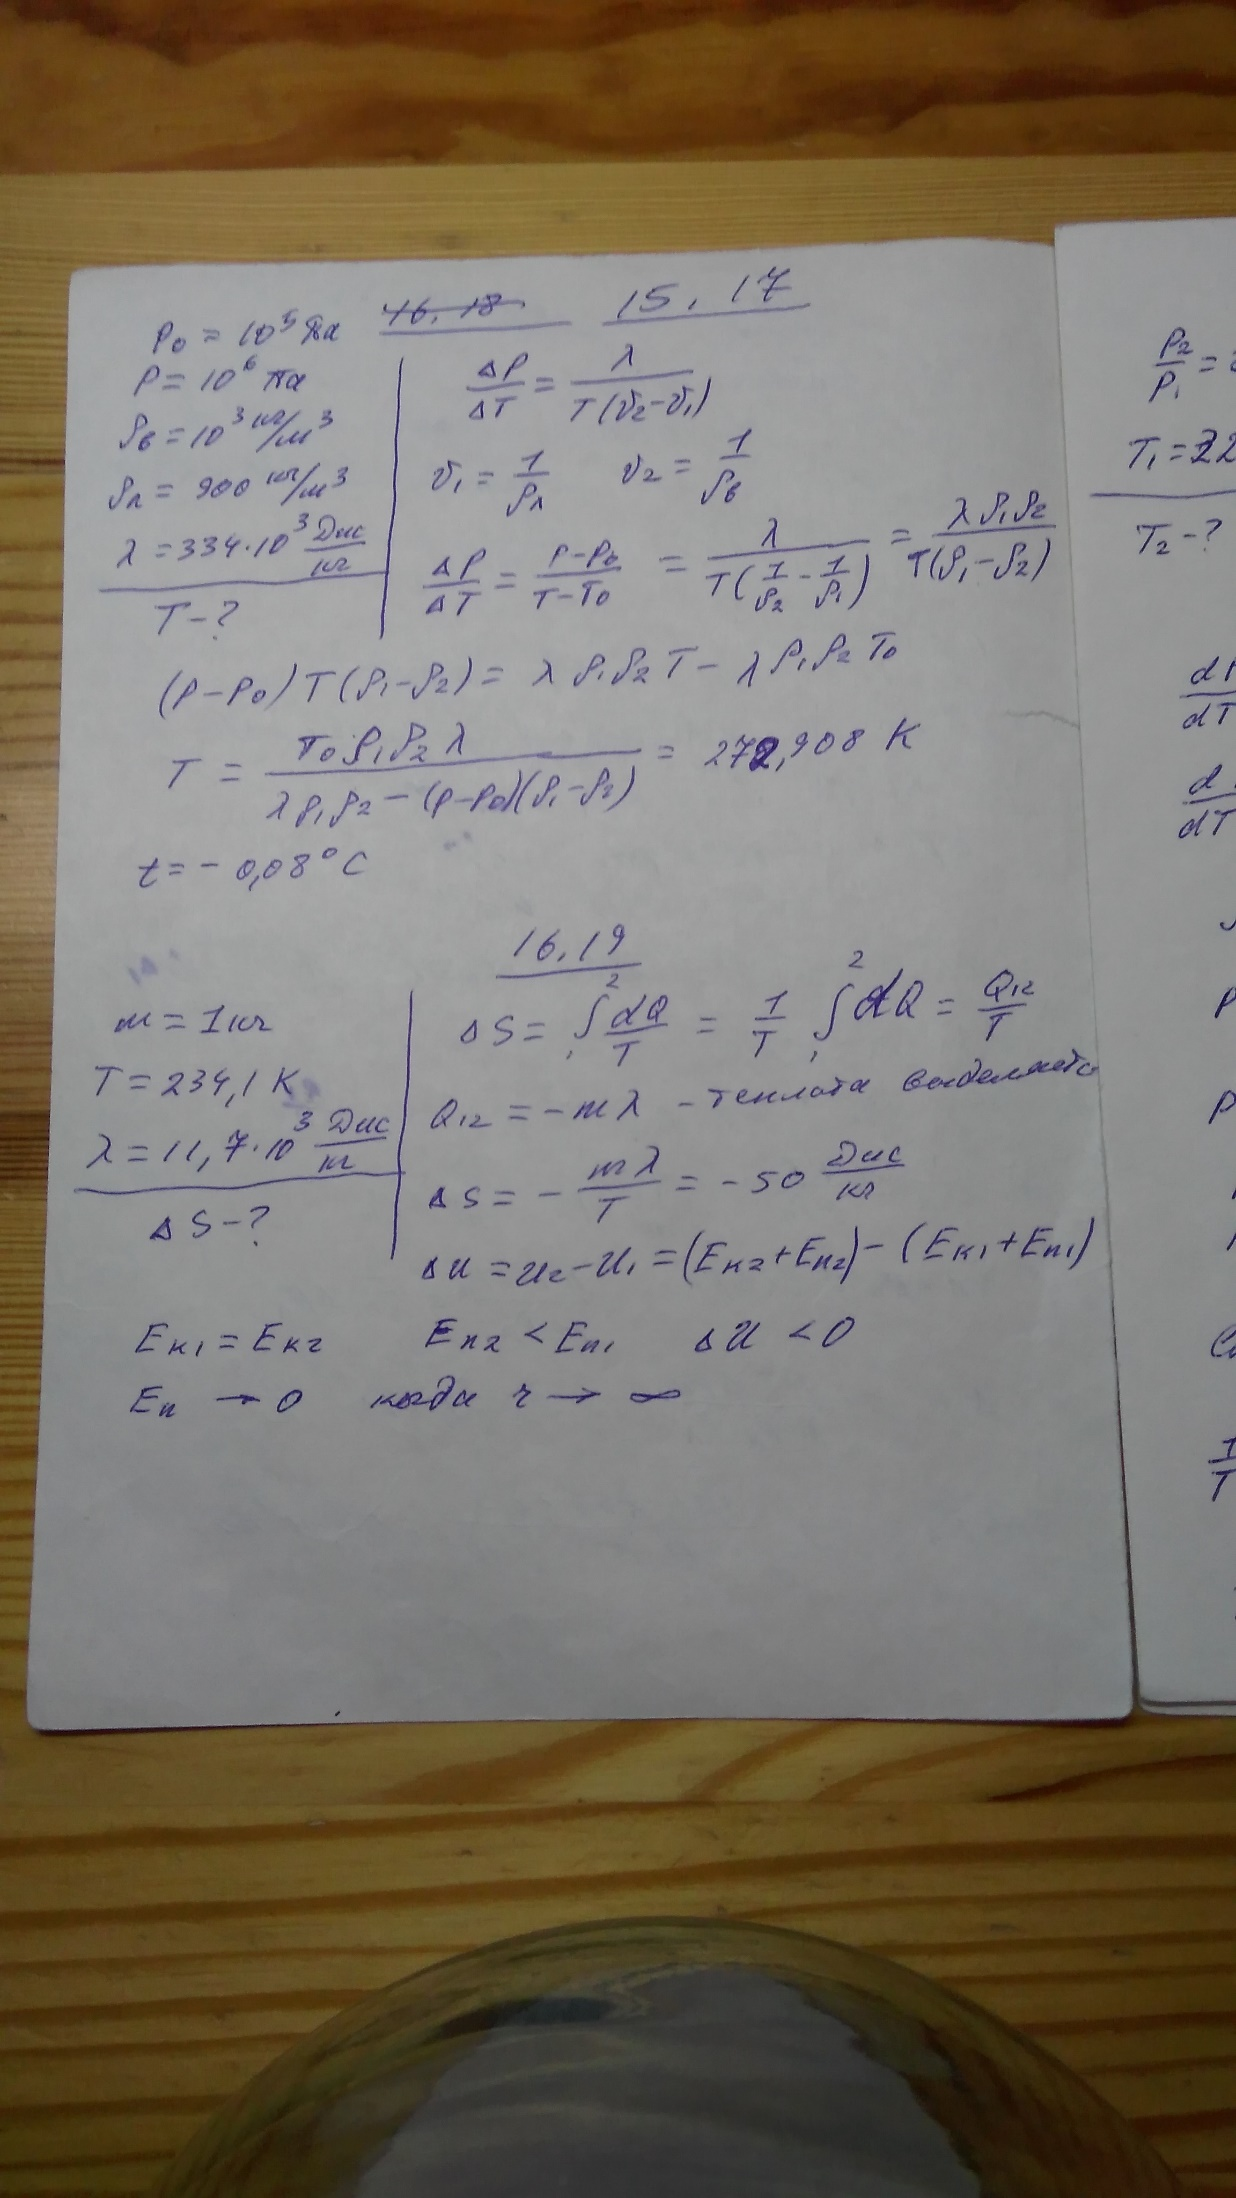 16.18 15.17
P₀ = 10⁵ Па
P = 10⁶ Па
ρв = 10³ кг/м³
ρл = 900 кг/м³
λ = 334·10³ Дж/кг
T - ?
ΔP/ΔT = λ/(T(v₂-v₁))
v₁ = 1/ρл v₂ = 1/ρв
ΔP/ΔT = (P-P₀)/(T-T₀) = λ/(T(1/ρ₂ - 1/ρ₁)) = λρ₁ρ₂/(T(ρ₁-ρ₂))
(P-P₀)T(ρ₁-ρ₂) = λρ₁ρ₂T - λρ₁ρ₂T₀
T = T₀ρ₁ρ₂λ/(λρ₁ρ₂-(P-P₀)(ρ₁-ρ₂)) = 272,908 K
t = -0,08°C
16.19
m = 1 кг
T = 234,1 K
λ = 11,7·10³ Дж/кг
ΔS - ?
ΔS = ∫₁² dQ/T = 1/T ∫₁² dQ = Q₁₂/T
Q₁₂ = -mλ - теплота выделяется
ΔS = - mλ/T = -50 Дж/кг
ΔU = U₂-U₁ = (Eк₂+Eп₂)-(Eк₁+Eп₁)
Eк₁ = Eк₂ Eп₂ < Eп₁ ΔU < 0
Eп → 0 когда r → ∞
P₂/P₁ =
T₁ = 22
T₂ - ?
dT
dT
P
P
T